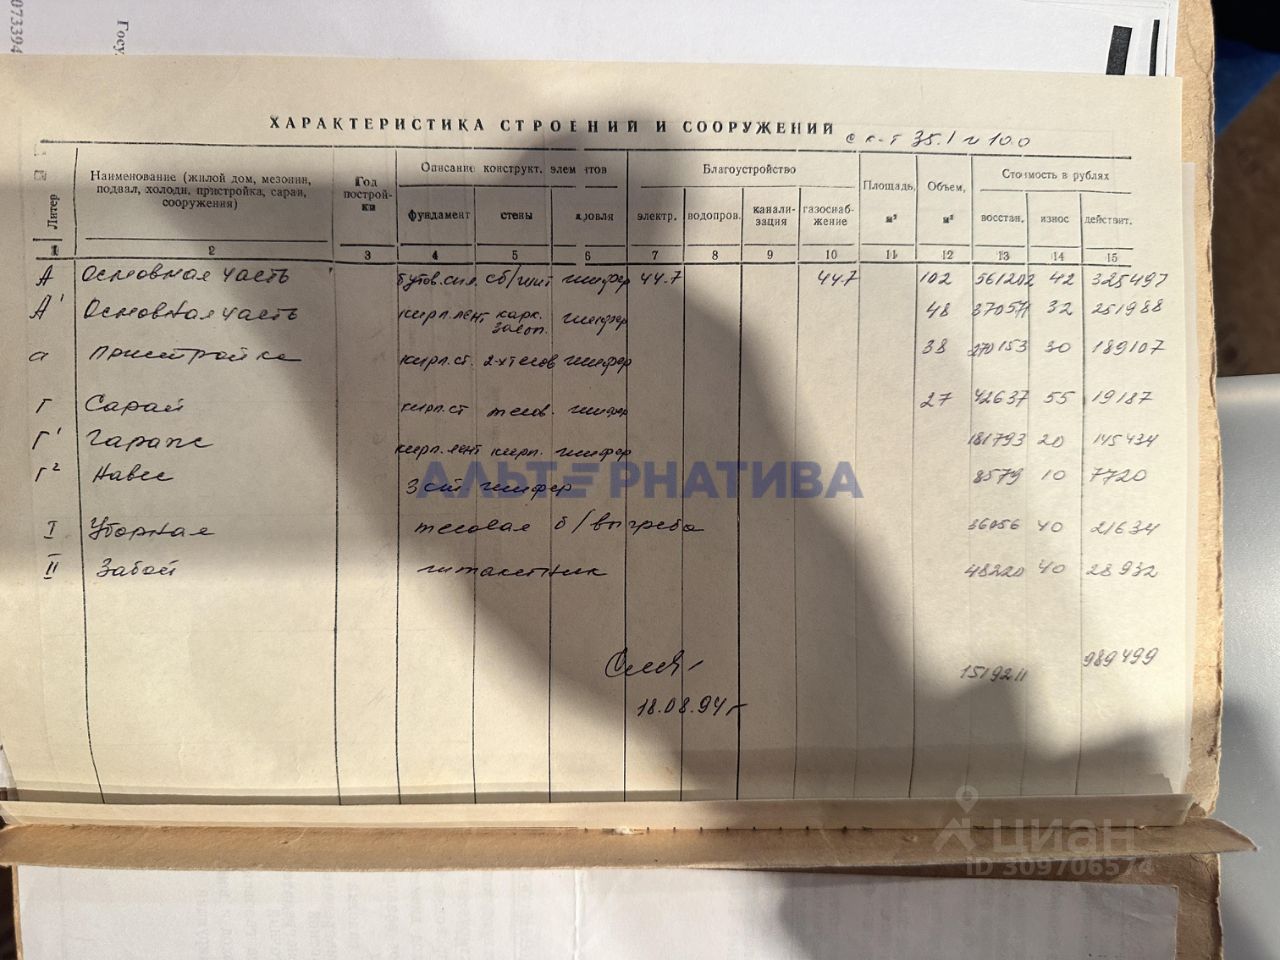 073394
Госу
ХАРАКТЕРИСТИКА СТРОЕНИЙ И СООРУЖЕНИЙ
с к-т 35.1 и 10.0
Литер
Наименование (жилой дом, мезонин, подвал, холодн. пристройка, сараи, сооружения)
Год построй-ки
Описание конструкт. элементов
Благоустройство
Площадь, м²
Объем, м³
Стоимость в рублях
фундамент стены кровля электр. водопров. канали-зация газоснаб-жение восстан. износ действит.
1 2 3 4 5 6 7 8 9 10 11 12 13 14 15
А Основная часть бутов. сб/щит шифер 44.7 44.7 102 561202 42 325497
А' Основная часть кирп. лент карк. засып. шифер 48 251988 32
а Пристройка кирп. ст. 2-х тесов шифер 38 270153 30 189107
Г Сарай кирп. ст тесов. шифер 27 42637 55 19187
Г' Гараж кирп. лент кирп. шифер 181793 20 145434
Г² Навес 3 ст шифер 8579 10 7720
I Уборная тесовая б/выгреба 36056 40 21634
II Забой штакетник 48220 40 28932
1519211 989499
18.08.94г
АЛЬТЕРНАТИВА
циан
ID 309706574